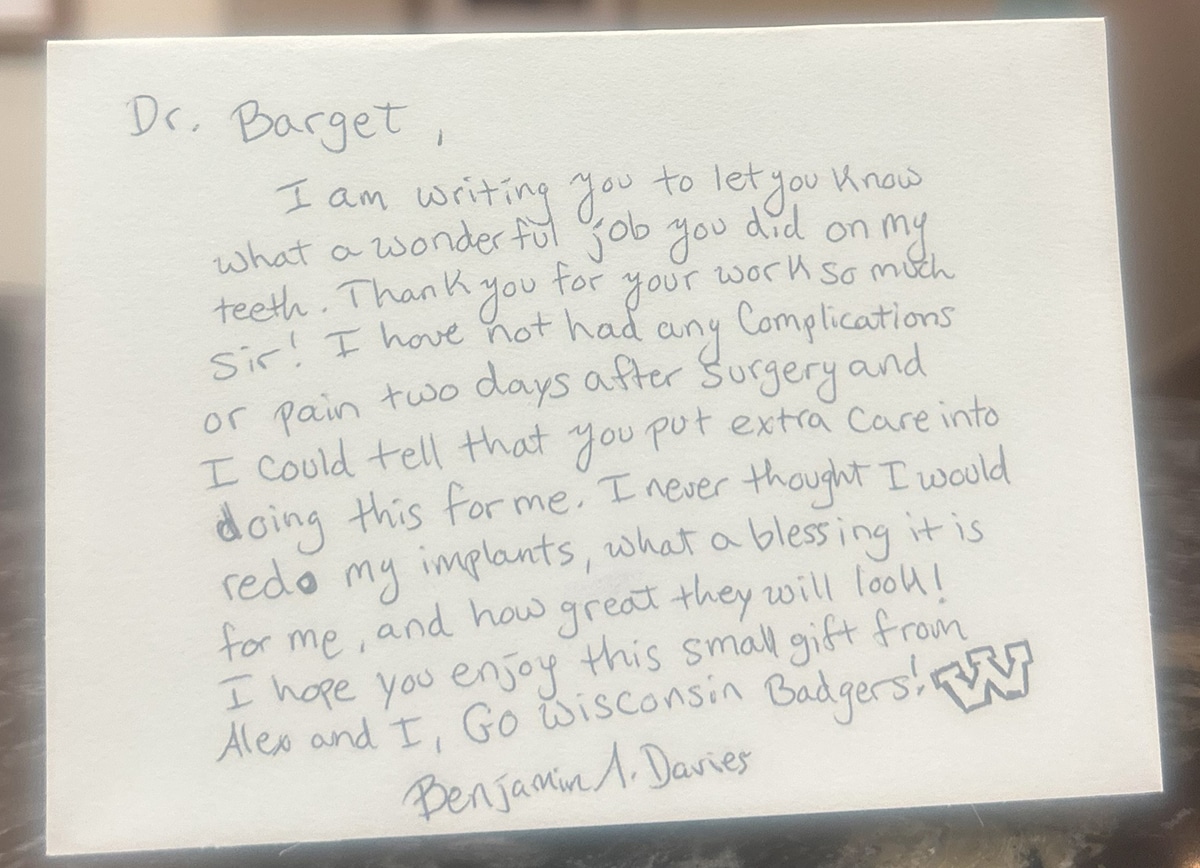 Dr. Barget,
I am writing you to let you know
what a wonderful job you did on my
teeth. Thank you for your work so much
Sir! I have not had any Complications
or pain two days after surgery and
I could tell that you put extra care into
doing this for me. I never thought I would
redo my implants, what a blessing it is
for me, and how great they will look!
I hope you enjoy this small gift from
Alex and I, Go Wisconsin Badgers! W
Benjamin A. Davies